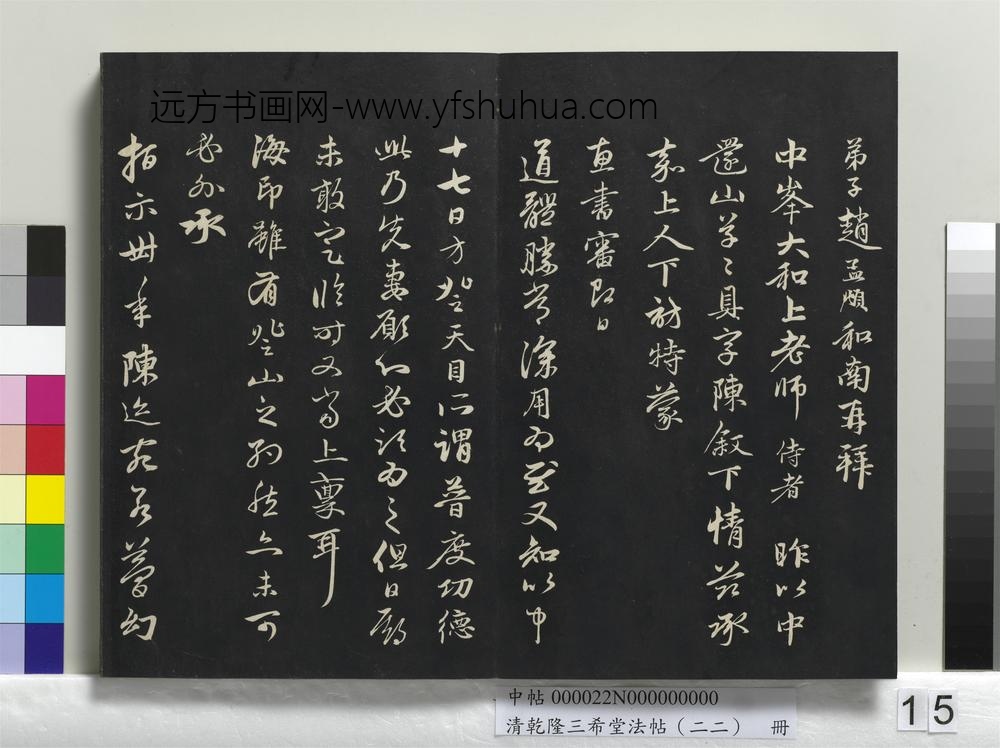 远方书画网-www.yfshuhua.com
弟子趙孟頫和南再拜
中峯大和上老师侍者 昨以中
還山草〻具字陳叙下情茲承
嘉上人下訪特蒙
惠書審即日
道體勝常深用為慰又知以中
十七日方登天目所謂普度功德
此乃先妻願心必須為之但日
未敢定臨时又當上稟耳
海印雖有登山之約然亦未可
必外承
指示卅年陳迹宛若夢幻
中帖 000022N000000000
清乾隆三希堂法帖（二二） 冊
15